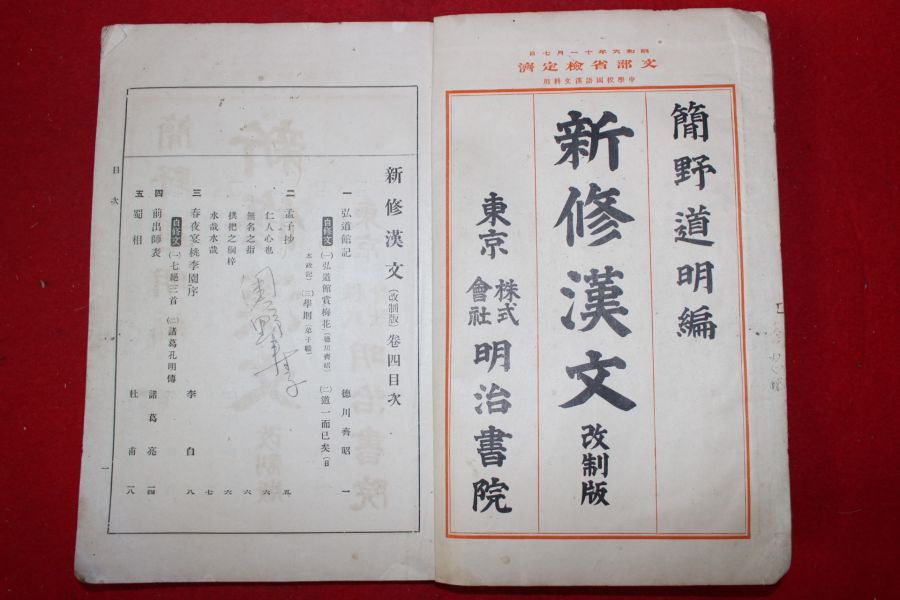 昭和六年十一月七日
文部省檢定濟
中學校國語漢文科用
簡野道明編
新修漢文 改制版
東京 株式會社 明治書院
新修漢文(改制版)卷四目次
一 弘道館記 德川齊昭 一
自修文 (一)弘道館賞梅花(德川齊昭) (二)道一而已矣(日
本政記) (三)學則(弟子職)
二 孟子抄 五
仁人心也 六
無名之指 六
拱把之桐梓 六
水哉水哉 七
三 春夜宴桃李園序 李白 八
自修文 (一)七絕三首 (二)諸葛孔明傳
四 前出師表 諸葛亮 一四
五 蜀相 杜甫 一八
目次
一